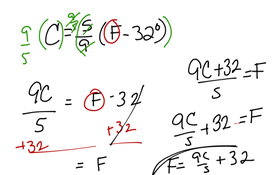 9/5 (C = 9/5 (5/9 (F - 32°))
9C/5 = F - 32
+32 +32
= F
(9C + 32)/5 = F
9C/5 + 32 = F
F = 9C/5 + 32